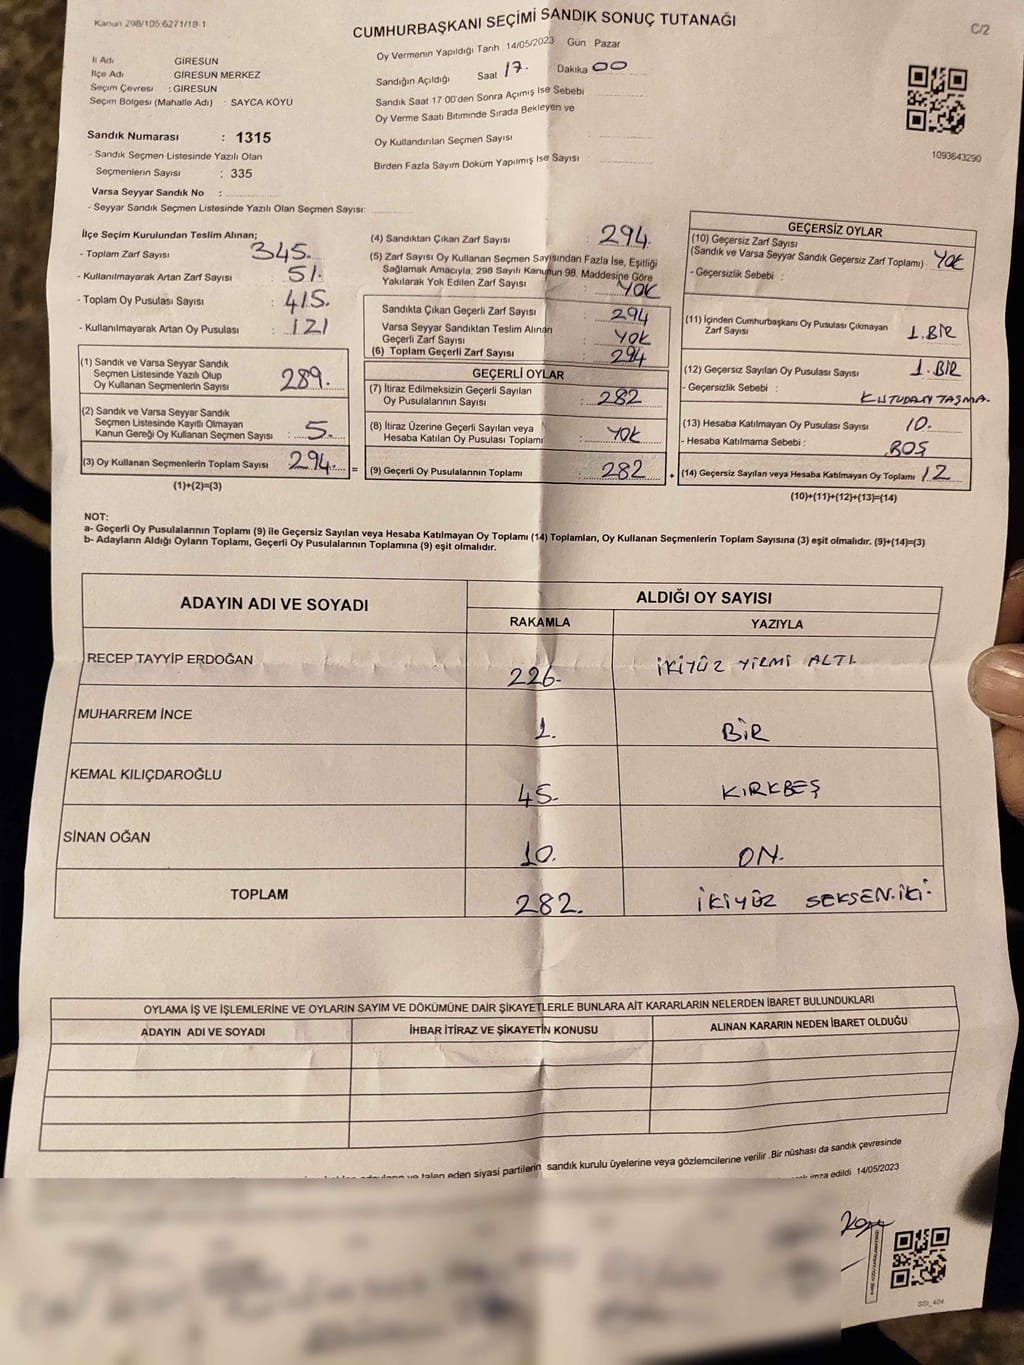 Kanun 298/105.6271/18-1
CUMHURBAŞKANI SEÇİMİ SANDIK SONUÇ TUTANAĞI
C/2
İl Adı GİRESUN
İlçe Adı GİRESUN MERKEZ
Seçim Çevresi : GİRESUN
Seçim Bölgesi (Mahalle Adı) : SAYCA KÖYÜ
Oy Vermenin Yapıldığı Tarih 14/05/2023 Gün Pazar
Sandığın Açıldığı Saat 17. Dakika 00
Sandık Saat 17:00'den Sonra Açımış İse Sebebi
Oy Verme Saati Bitiminde Sırada Bekleyen ve
Oy Kullandırılan Seçmen Sayısı
Birden Fazla Sayım Döküm Yapılmış İse Sayısı
1093643290
Sandık Numarası : 1315
- Sandık Seçmen Listesinde Yazılı Olan
Seçmenlerin Sayısı : 335
Varsa Seyyar Sandık No :
- Seyyar Sandık Seçmen Listesinde Yazılı Olan Seçmen Sayısı:
İlçe Seçim Kurulundan Teslim Alınan;
- Toplam Zarf Sayısı : 345.
- Kullanılmayarak Artan Zarf Sayısı : 51.
- Toplam Oy Pusulası Sayısı : 415.
- Kullanılmayarak Artan Oy Pusulası : 121
(1) Sandık ve Varsa Seyyar Sandık
Seçmen Listesinde Yazılı Olup
Oy Kullanan Seçmenlerin Sayısı : 289.
(2) Sandık ve Varsa Seyyar Sandık
Seçmen Listesinde Kayıtlı Olmayan
Kanun Gereği Oy Kullanan Seçmen Sayısı : 5.
(3) Oy Kullanan Seçmenlerin Toplam Sayısı 294. =
(1)+(2)=(3)
(4) Sandıktan Çıkan Zarf Sayısı : 294.
(5) Zarf Sayısı Oy Kullanan Seçmen Sayısından Fazla İse, Eşitliği
Sağlamak Amacıyla, 298 Sayılı Kanunun 98. Maddesine Göre
Yakılarak Yok Edilen Zarf Sayısı : YOK
Sandıkta Çıkan Geçerli Zarf Sayısı : 294
Varsa Seyyar Sandıktan Teslim Alınan
Geçerli Zarf Sayısı : YOK
(6) Toplam Geçerli Zarf Sayısı : 294
GEÇERLİ OYLAR
(7) İtiraz Edilmeksizin Geçerli Sayılan
Oy Pusulalarının Sayısı : 282
(8) İtiraz Üzerine Geçerli Sayılan veya
Hesaba Katılan Oy Pusulası Toplamı : YOK
(9) Geçerli Oy Pusulalarının Toplamı : 282 +
GEÇERSİZ OYLAR
(10) Geçersiz Zarf Sayısı
(Sandık ve Varsa Seyyar Sandık Geçersiz Zarf Toplamı) YOK
- Geçersizlik Sebebi :
(11) İçinden Cumhurbaşkanı Oy Pusulası Çıkmayan
Zarf Sayısı 1.BİR
(12) Geçersiz Sayılan Oy Pusulası Sayısı 1.BİR
- Geçersizlik Sebebi : KUTUDAN TAŞMA.
(13) Hesaba Katılmayan Oy Pusulası Sayısı 10.
- Hesaba Katılmama Sebebi : BOŞ
(14) Geçersiz Sayılan veya Hesaba Katılmayan Oy Toplamı 12
(10)+(11)+(12)+(13)=(14)
NOT:
a- Geçerli Oy Pusulalarının Toplamı (9) ile Geçersiz Sayılan veya Hesaba Katılmayan Oy Toplamı (14) Toplamları, Oy Kullanan Seçmenlerin Toplam Sayısına (3) eşit olmalıdır. (9)+(14)=(3)
b- Adayların Aldığı Oyların Toplamı, Geçerli Oy Pusulalarının Toplamına (9) eşit olmalıdır.
ADAYIN ADI VE SOYADI ALDIĞI OY SAYISI
RAKAMLA YAZIYLA
RECEP TAYYİP ERDOĞAN 226- İKİYÜZ YİRMİ ALTI
MUHARREM İNCE 1. BİR
KEMAL KILIÇDAROĞLU 45- KIRKBEŞ
SİNAN OĞAN 10. ON.
TOPLAM 282. İKİYÜZ SEKSEN.İKİ-
OYLAMA İŞ VE İŞLEMLERİNE VE OYLARIN SAYIM VE DÖKÜMÜNE DAİR ŞİKAYETLERLE BUNLARA AİT KARARLARIN NELERDEN İBARET BULUNDUKLARI
ADAYIN ADI VE SOYADI İHBAR İTİRAZ VE ŞİKAYETİN KONUSU ALINAN KARARIN NEDEN İBARET OLDUĞU
talep eden siyasi partilerin sandık kurulu üyelerine veya gözlemcilerine verilir. Bir nüshası da sandık çevresinde
imza edildi 14/05/2023
SSI_404